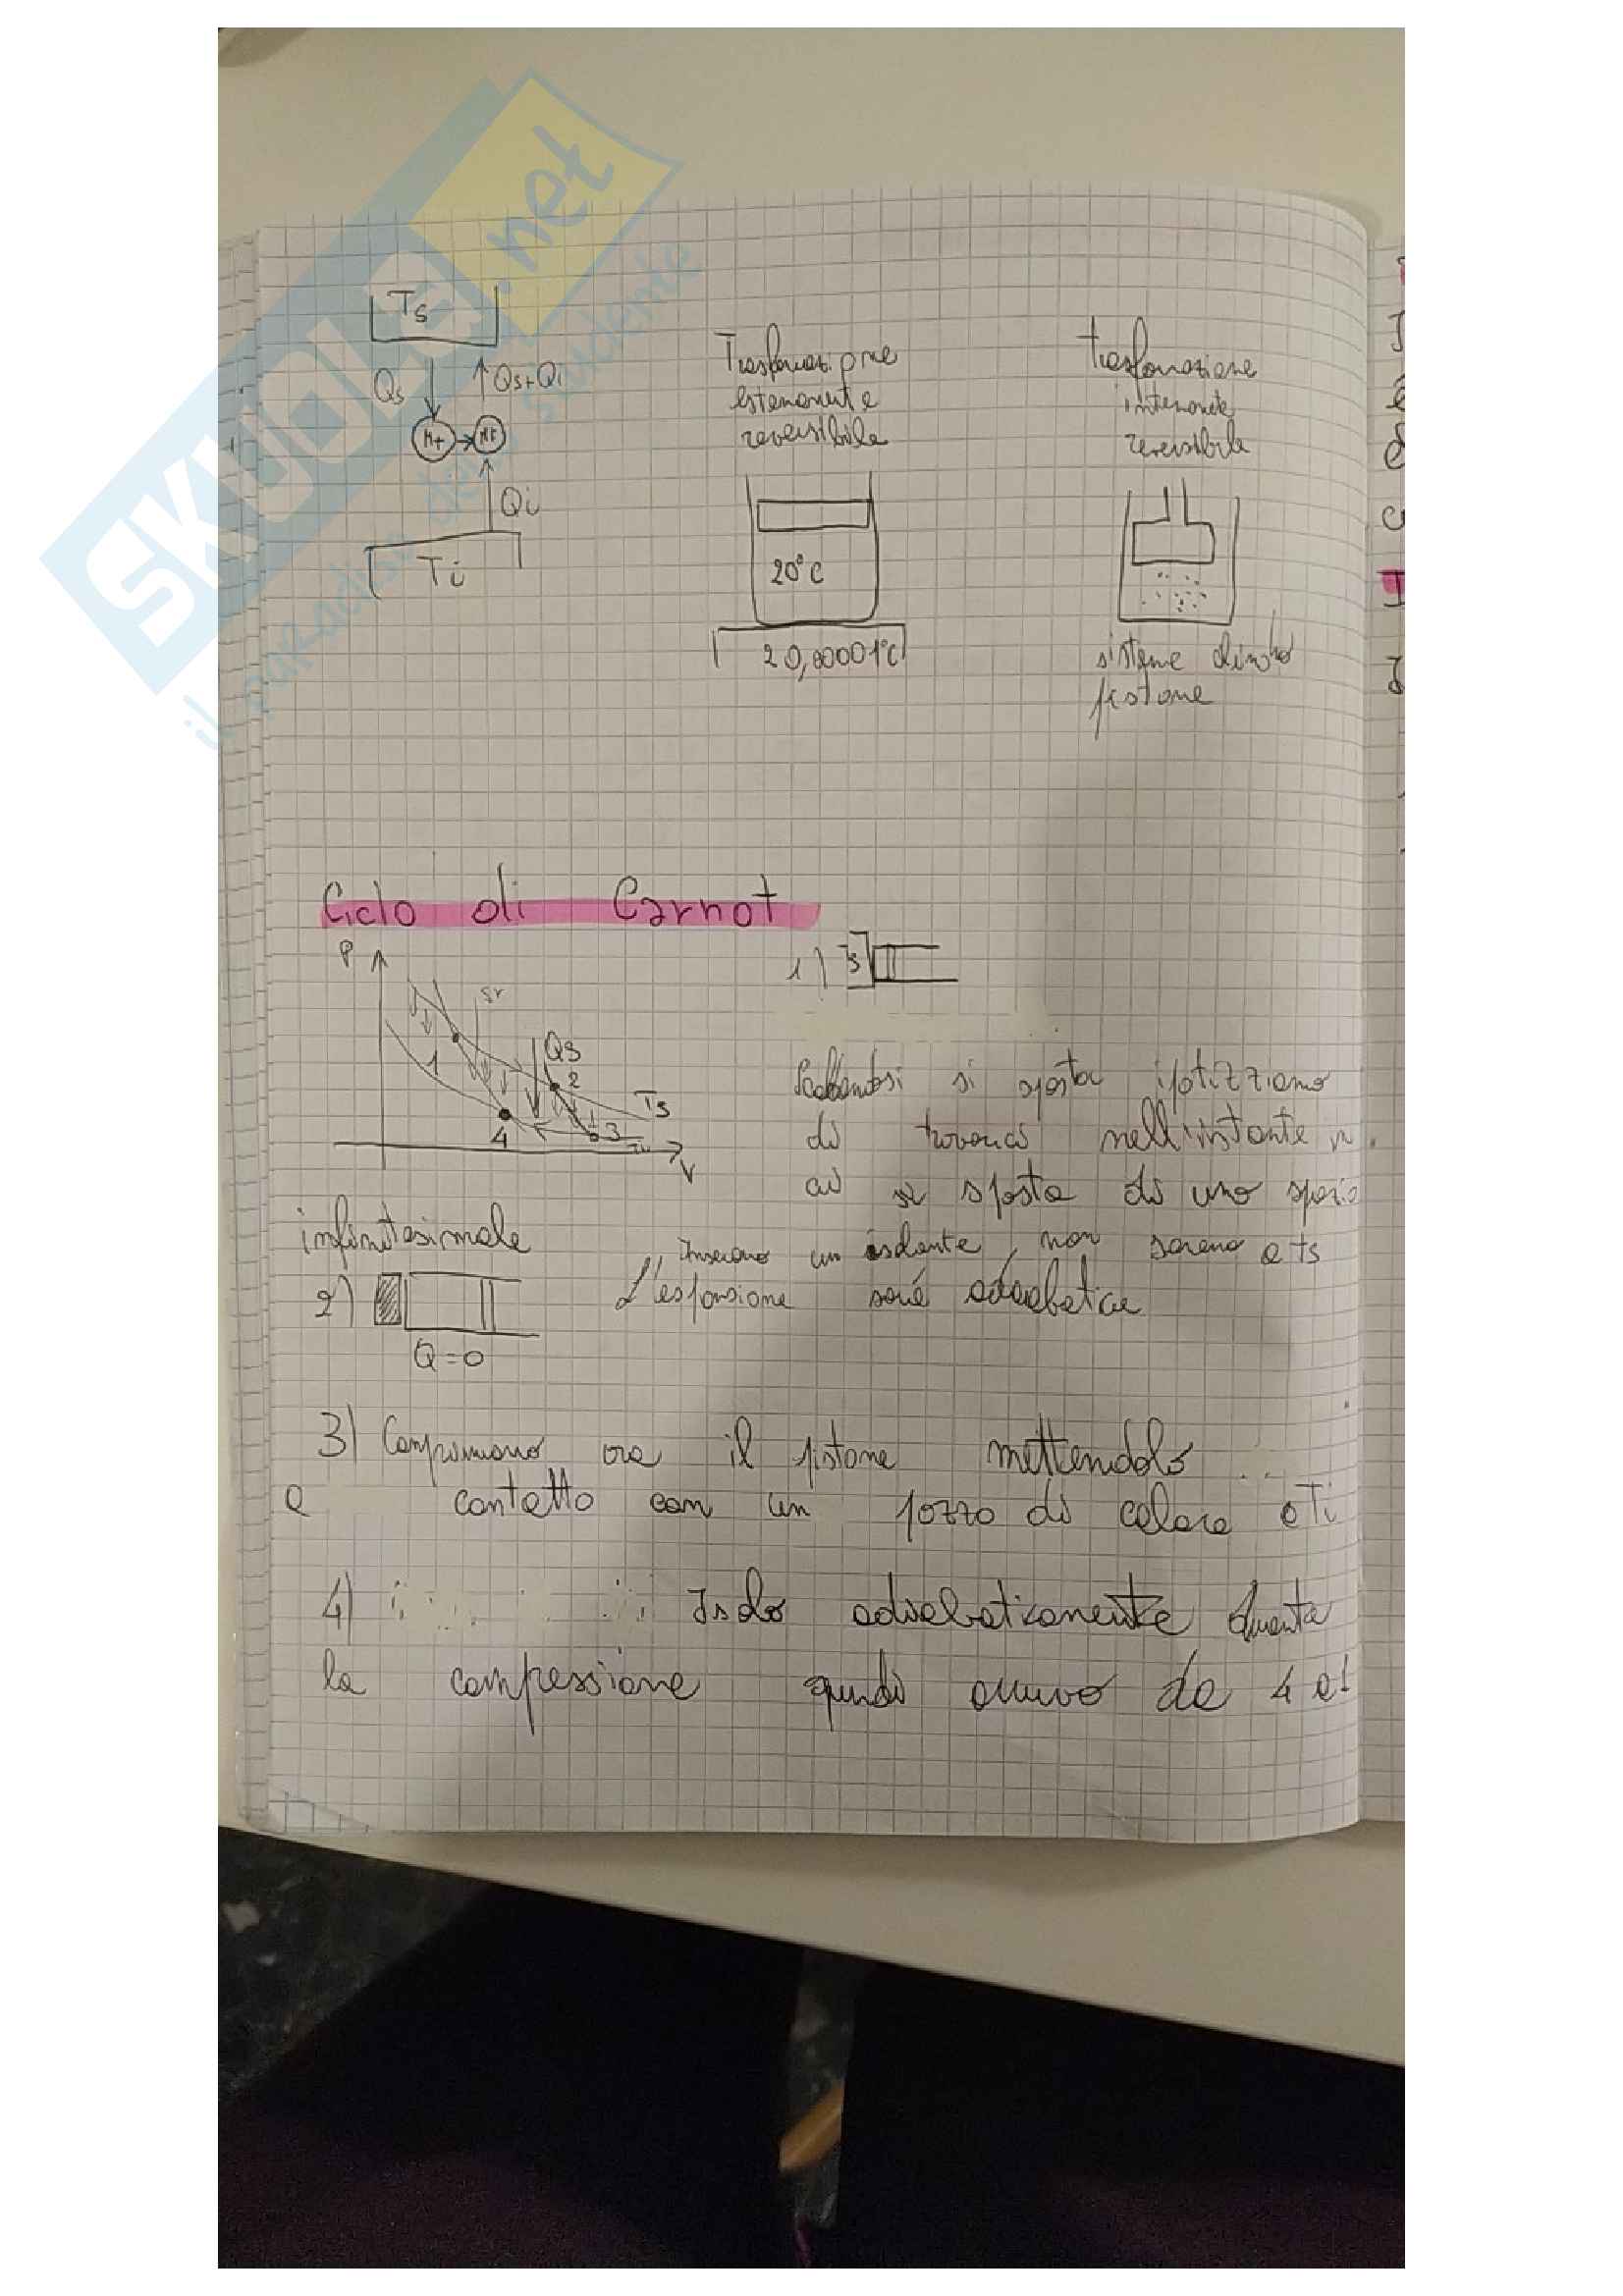 SKUOLA.net
il paradiso dello studente
Ts
Qs
Qs+Qi
Mt
MF
Qi
Ti
Trasformazione
esternamente
reversibile
20°C
20,00001°C
trasformazione
internamente
reversibile
sistema cilindro
pistone
Ciclo di Carnot
P
1
Qs
2
Ts
3
4
V
1) Ts
Scaldandosi si sposta ipotizziamo
di trovarci nell'istante in
cui si sposta di uno spazio
infinitesimale
Inseriamo un isolante, non saremo a ts
2)
L'espansione sarà adiabatica
Q=0
3) Comprimiamo ora il pistone mettendolo
a contatto con un pozzo di calore a Ti
4) Isolo adiabaticamente durante
la compressione quindi arrivo da 4 a 1